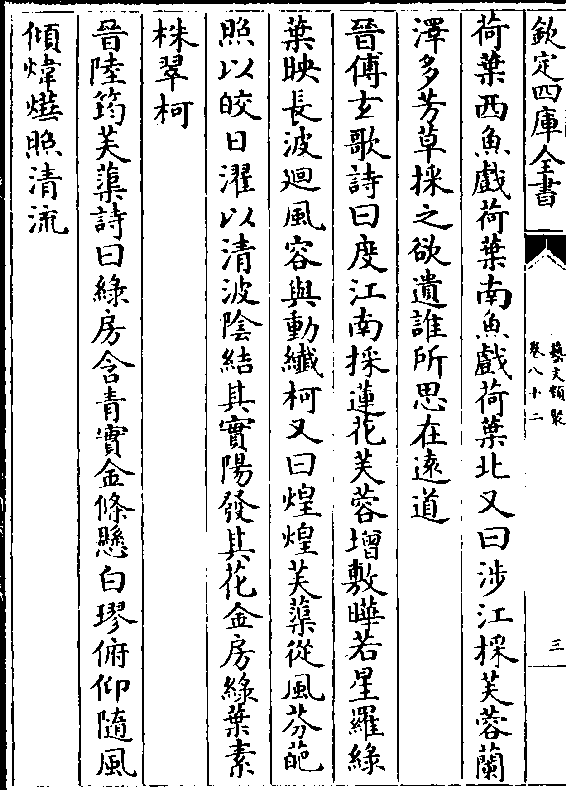 欽定四庫全書
藝文類聚
卷八十二
三
荷葉西魚戲荷葉南魚戲荷葉北又曰涉江採芙蓉蘭
澤多芳草採之欲遺誰所思在遠道
晉傅玄歌詩曰度江南採蓮花芙蓉增敷曄若星羅綠
葉映長波迴風容與動纖柯又曰煌煌芙蕖從風芬葩
照以皎日濯以清波陰結其實陽發其花金房綠葉素
株翠柯
晉陸筠芙蕖詩曰綠房含青實金條懸白璆俯仰隨風
傾煒爗照清流